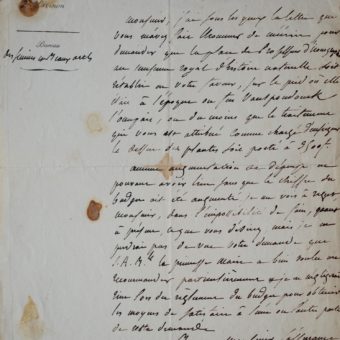 Division
Bureau
des sciences et Beaux arts
Monsieur, j'ai sous les yeux la lettre que
vous m'avez fait l'honneur de m'écrire pour
demander que la place de Professeur d'iconographie
au muséum royal d'histoire naturelle soit
rétablie en votre faveur, sur le pied où elle
était à l'époque où feu Vanspaendonck
l'occupait, ou du moins que le traitement
qui vous est attribué comme chargé d'enseigner
le dessin des plantes soit porté à
aucune augmentation de dépense ne
pouvant avoir lieu sans que le chiffre du
budget ait été augmenté je me vois à regret
Monsieur, dans l'impossibilité de faire, quant
à présent, ce que vous désirez mais je ne
perdrai pas de vue votre demande que
S. A. R. la princesse Marie a bien voulu me
recommander particulièrement et je ne négligerai
rien lors du règlement du budget pour obtenir
les moyens de satisfaire à l'une ou l'autre partie
de votre demande.